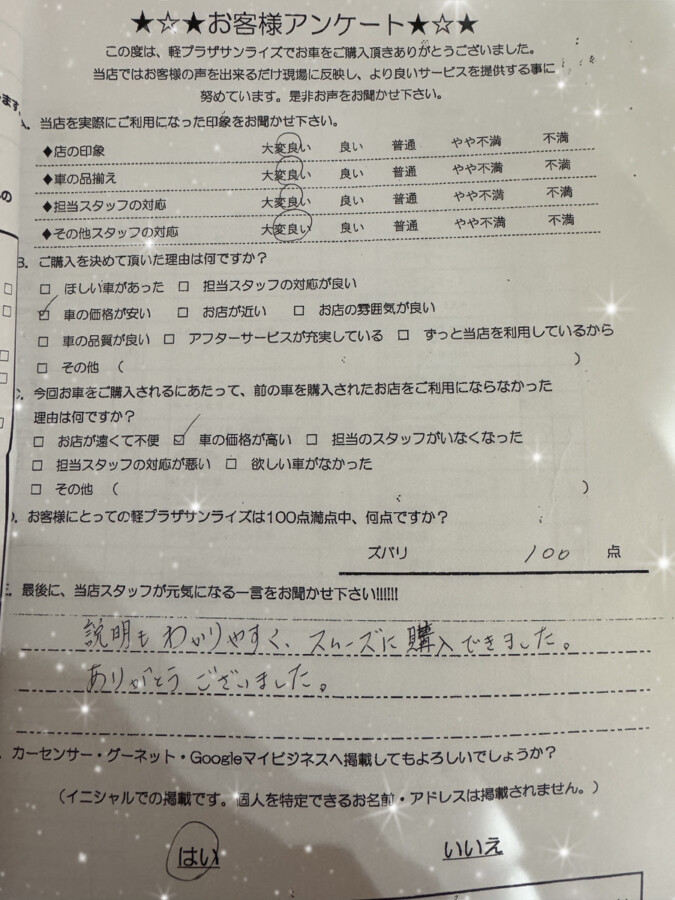 ★☆★お客様アンケート★☆★
この度は、軽プラザサンライズでお車をご購入頂きありがとうございました。
当店ではお客様の声を出来るだけ現場に反映し、より良いサービスを提供する事に
努めています。是非お声をお聞かせ下さい。
A. 当店を実際にご利用になった印象をお聞かせ下さい。
◆店の印象 大変良い 良い 普通 やや不満 不満
◆車の品揃え 大変良い 良い 普通 やや不満 不満
◆担当スタッフの対応 大変良い 良い 普通 やや不満 不満
◆その他スタッフの対応 大変良い 良い 普通 やや不満 不満
B. ご購入を決めて頂いた理由は何ですか？
□ ほしい車があった □ 担当スタッフの対応が良い
☑ 車の価格が安い □ お店が近い □ お店の雰囲気が良い
□ 車の品質が良い □ アフターサービスが充実している □ ずっと当店を利用しているから
□ その他 （ ）
C. 今回お車をご購入されるにあたって、前の車を購入されたお店をご利用にならなかった
理由は何ですか？
□ お店が遠くて不便 ☑ 車の価格が高い □ 担当のスタッフがいなくなった
□ 担当スタッフの対応が悪い □ 欲しい車がなかった
□ その他 （ ）
お客様にとっての軽プラザサンライズは100点満点中、何点ですか？
ズバリ 100 点
最後に、当店スタッフが元気になる一言をお聞かせ下さい!!!!!!
説明もわかりやすく、スムーズに購入できました。
ありがとうございました。
カーセンサー・グーネット・Googleマイビジネスへ掲載してもよろしいでしょうか？
（イニシャルでの掲載です。個人を特定できるお名前・アドレスは掲載されません。）
はい いいえ